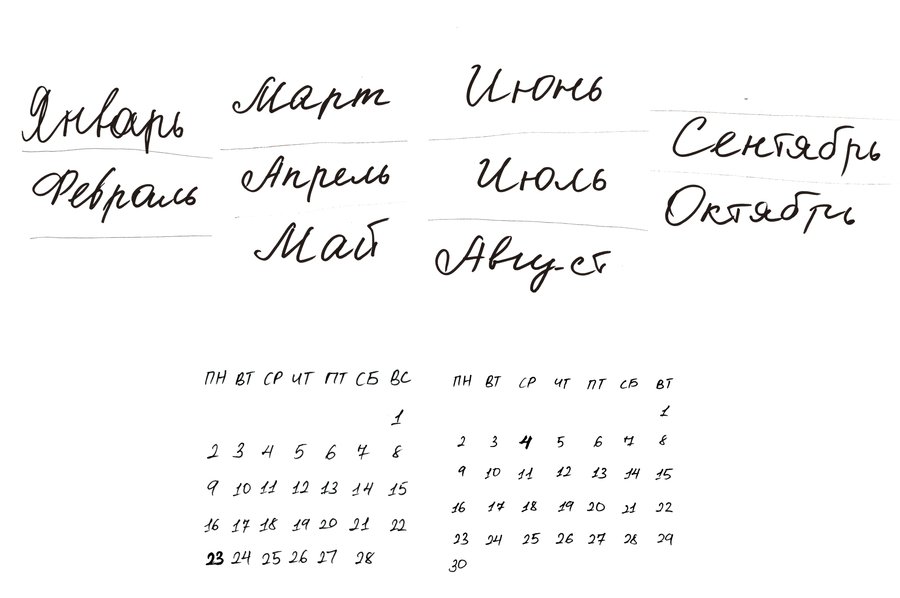 Январь
Февраль
Март
Апрель
Май
Июнь
Июль
Август
Сентябрь
Октябрь
ПН ВТ СР ЧТ ПТ СБ ВС
1
2 3 4 5 6 7 8
9 10 11 12 13 14 15
16 17 18 19 20 21 22
23 24 25 26 27 28
ПН ВТ СР ЧТ ПТ СБ ВТ
1
2 3 4 5 6 7 8
9 10 11 12 13 14 15
16 17 18 19 20 21 22
23 24 25 26 27 28 29
30